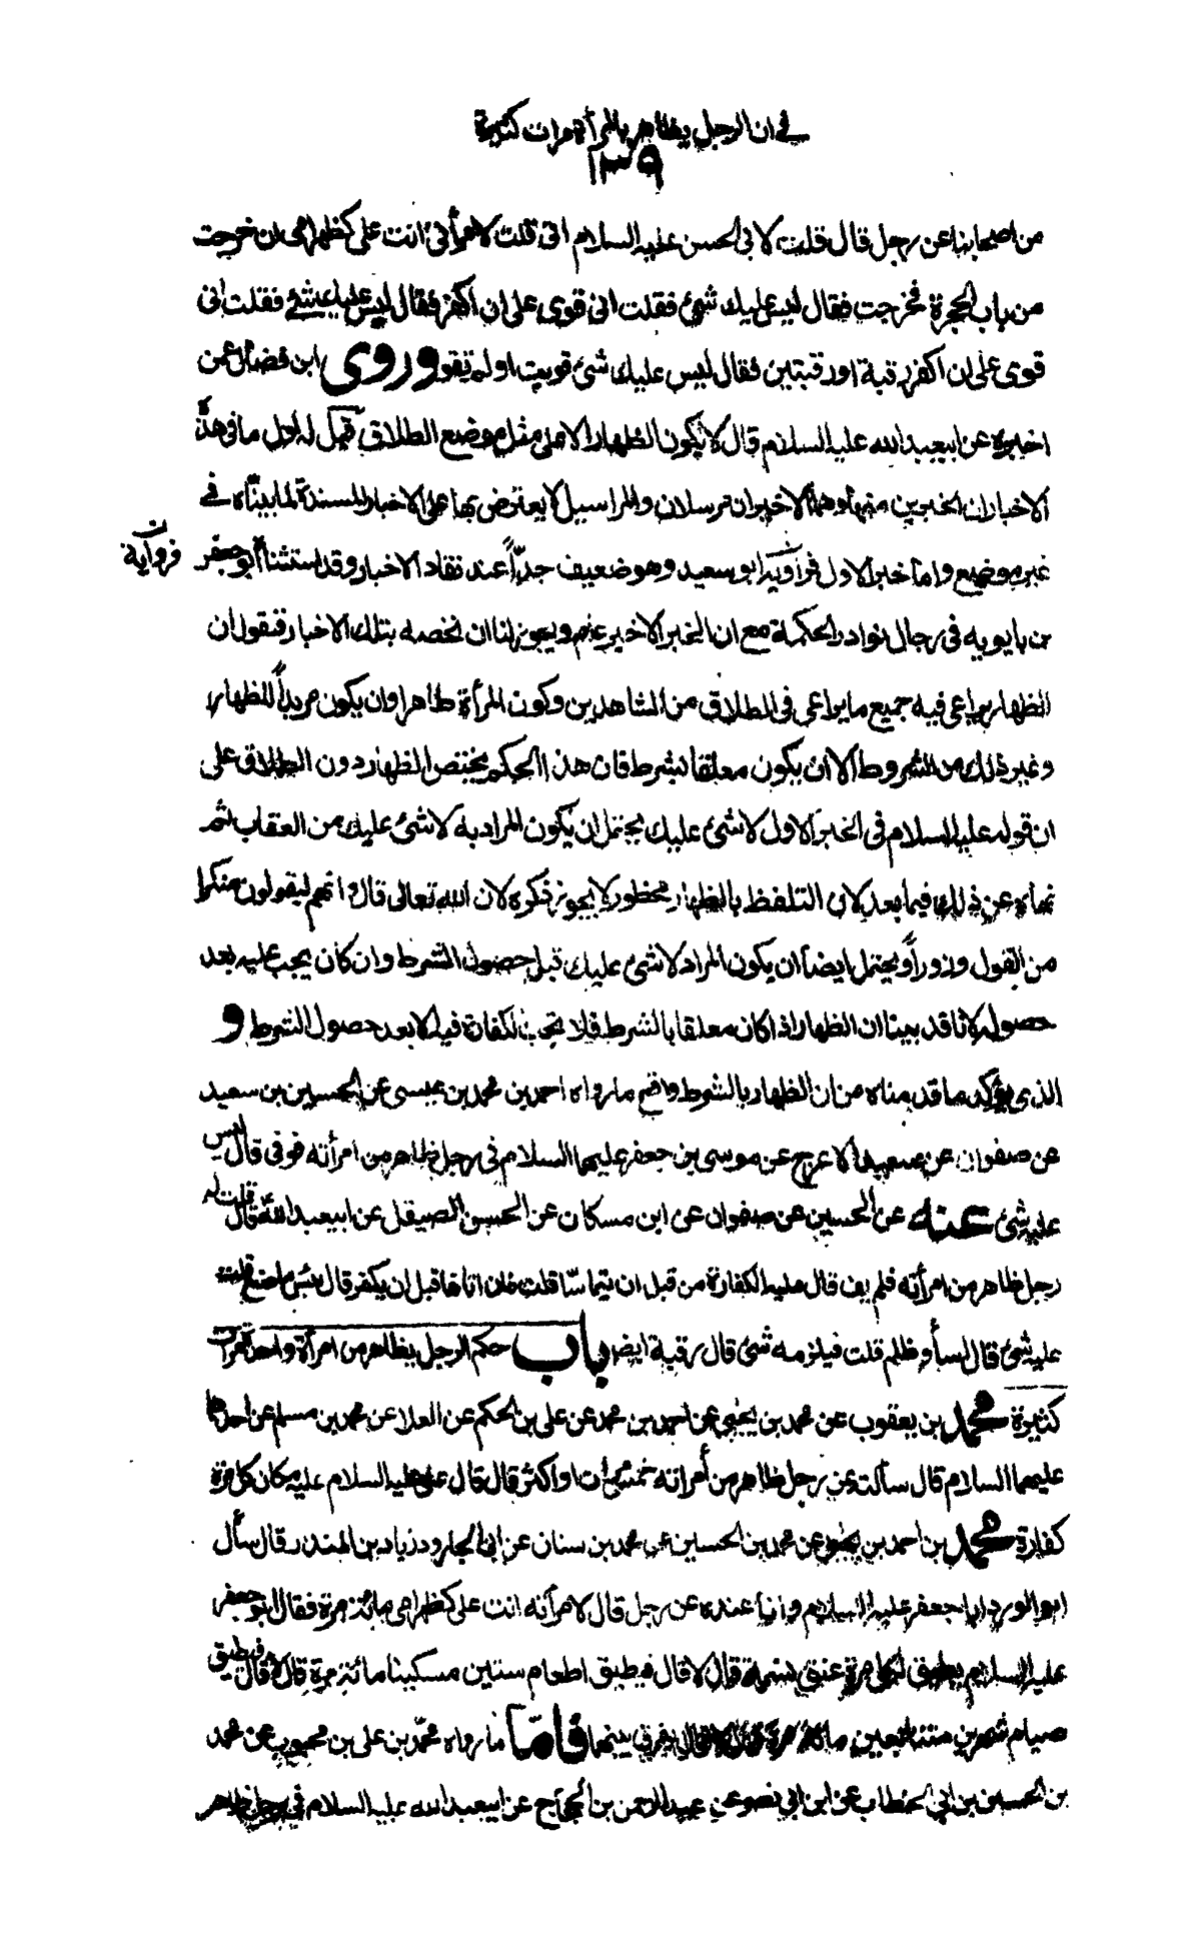 في ان الرجل يظاهر بالمرأة مرات كثيرة
١٣٩
من اصحابنا عن رجل قال قلت لابي الحسن عليه السلام اني قلت لامرأتي انت علي كظهر امي ان خرجت
من باب الحجرة فخرجت فقال ليس عليك شيء فقلت اني قوي على ان اكفر فقال ليس عليك شيء فقلت اني
قوي على ان اكفر رقبة او رقبتين فقال ليس عليك شيء قويت او لم تقو وروى ابن فضال عمن
اخبره عن ابيعبد الله عليه السلام قال لا يكون الظهار الا على مثل موضع الطلاق قيل له اول ما في هذه
الاخبار ان الخبرين منها وهما الاخيران مرسلان والمراسيل لا يعترض بها على الاخبار المسندة لما بيناه في
غير موضع واما خبر الاول فراويه ابو سعيد وهو ضعيف جداً عند نقاد الاخبار وقد استثناه أبو جعفر
فرواية
بن بابويه في رجال نوادر الحكمة مع ان الخبر الاخير عام ويجوز لنا ان نخصه بتلك الاخبار فنقول ان
الظهار يراعى فيه جميع ما يراعى في الطلاق من الشاهدين وكون المرأة طاهرا وان يكون مريداً للظهار
وغير ذلك من الشروط الا ان يكون معلقا بشرط فان هذا الحكم يختص الظهار دون الطلاق على
ان قوله عليه السلام في الخبر الاول لا شيء عليك يحتمل ان يكون المراد به لا شيء عليك من العقاب ثم
نهاه عن ذلك فيما بعد لان التلفظ بالظهار محظور لا يجوز ذكره لان الله تعالى قال وانهم ليقولون منكرا
من القول وزوراً ويحتمل ايضا ان يكون المراد لا شيء عليك قبل حصول الشرط وان كان يجب عليه بعد
حصوله لانا قد بينا ان الظهار اذا كان معلقا بالشرط فلا تجب الكفارة فيه الا بعد حصول الشرط و
الذي يؤكد ما قدمناه من ان الظهار بالشرط واقع ما رواه احمد بن محمد بن عيسى عن الحسين بن سعيد
عن صفوان عن سعيد الاعرج عن موسى بن جعفر عليهما السلام في رجل ظاهر من امرأته فوفى قال ليس
عليه شيء عنه عن الحسين عن صفوان عن ابن مسكان عن الحسن الصيقل عن ابيعبد الله قال قلت له
رجل ظاهر من امرأته فلم يف قال عليه الكفارة من قبل ان يتماسا قلت فان اتاها قبل ان يكفر قال بئس ما صنع قلت
عليه شيء قال اسأ وظلم قلت فيلزمه شيء قال رقبة ايضا باب حكم الرجل يظاهر من امرأة واحدة مرات
كثيرة محمد بن يعقوب عن محمد بن يحيى عن احمد بن محمد عن علي بن الحكم عن العلا عن محمد بن مسلم عن احدهما
عليهما السلام قال سألته عن رجل ظاهر من امرأته خمس مرات او اكثر قال قال علي عليه السلام عليه مكان كل مرة
كفارة محمد بن احمد بن يحيى عن محمد بن الحسين عن محمد بن سنان عن ابي الجارود زياد بن المنذر قال سأل
ابو الورد ابا جعفر عليه السلام وانا عنده عن رجل قال لامرأته انت علي كظهر امي مائة مرة فقال ابو جعفر
عليه السلام يطيق لكل مرة عتق نسمة قال لا قال فيطيق اطعام ستين مسكينا مائة مرة قال لا قال فيطيق
صيام شهرين متتابعين مائة مرة قال لا قال يفرق بينهما فاما ما رواه محمد بن علي بن محبوب عن محمد
بن الحسين بن ابي الخطاب عن ابن ابي نصر عن عبد الرحمن بن الحجاج عن ابيعبد الله عليه السلام في رجل ظاهر